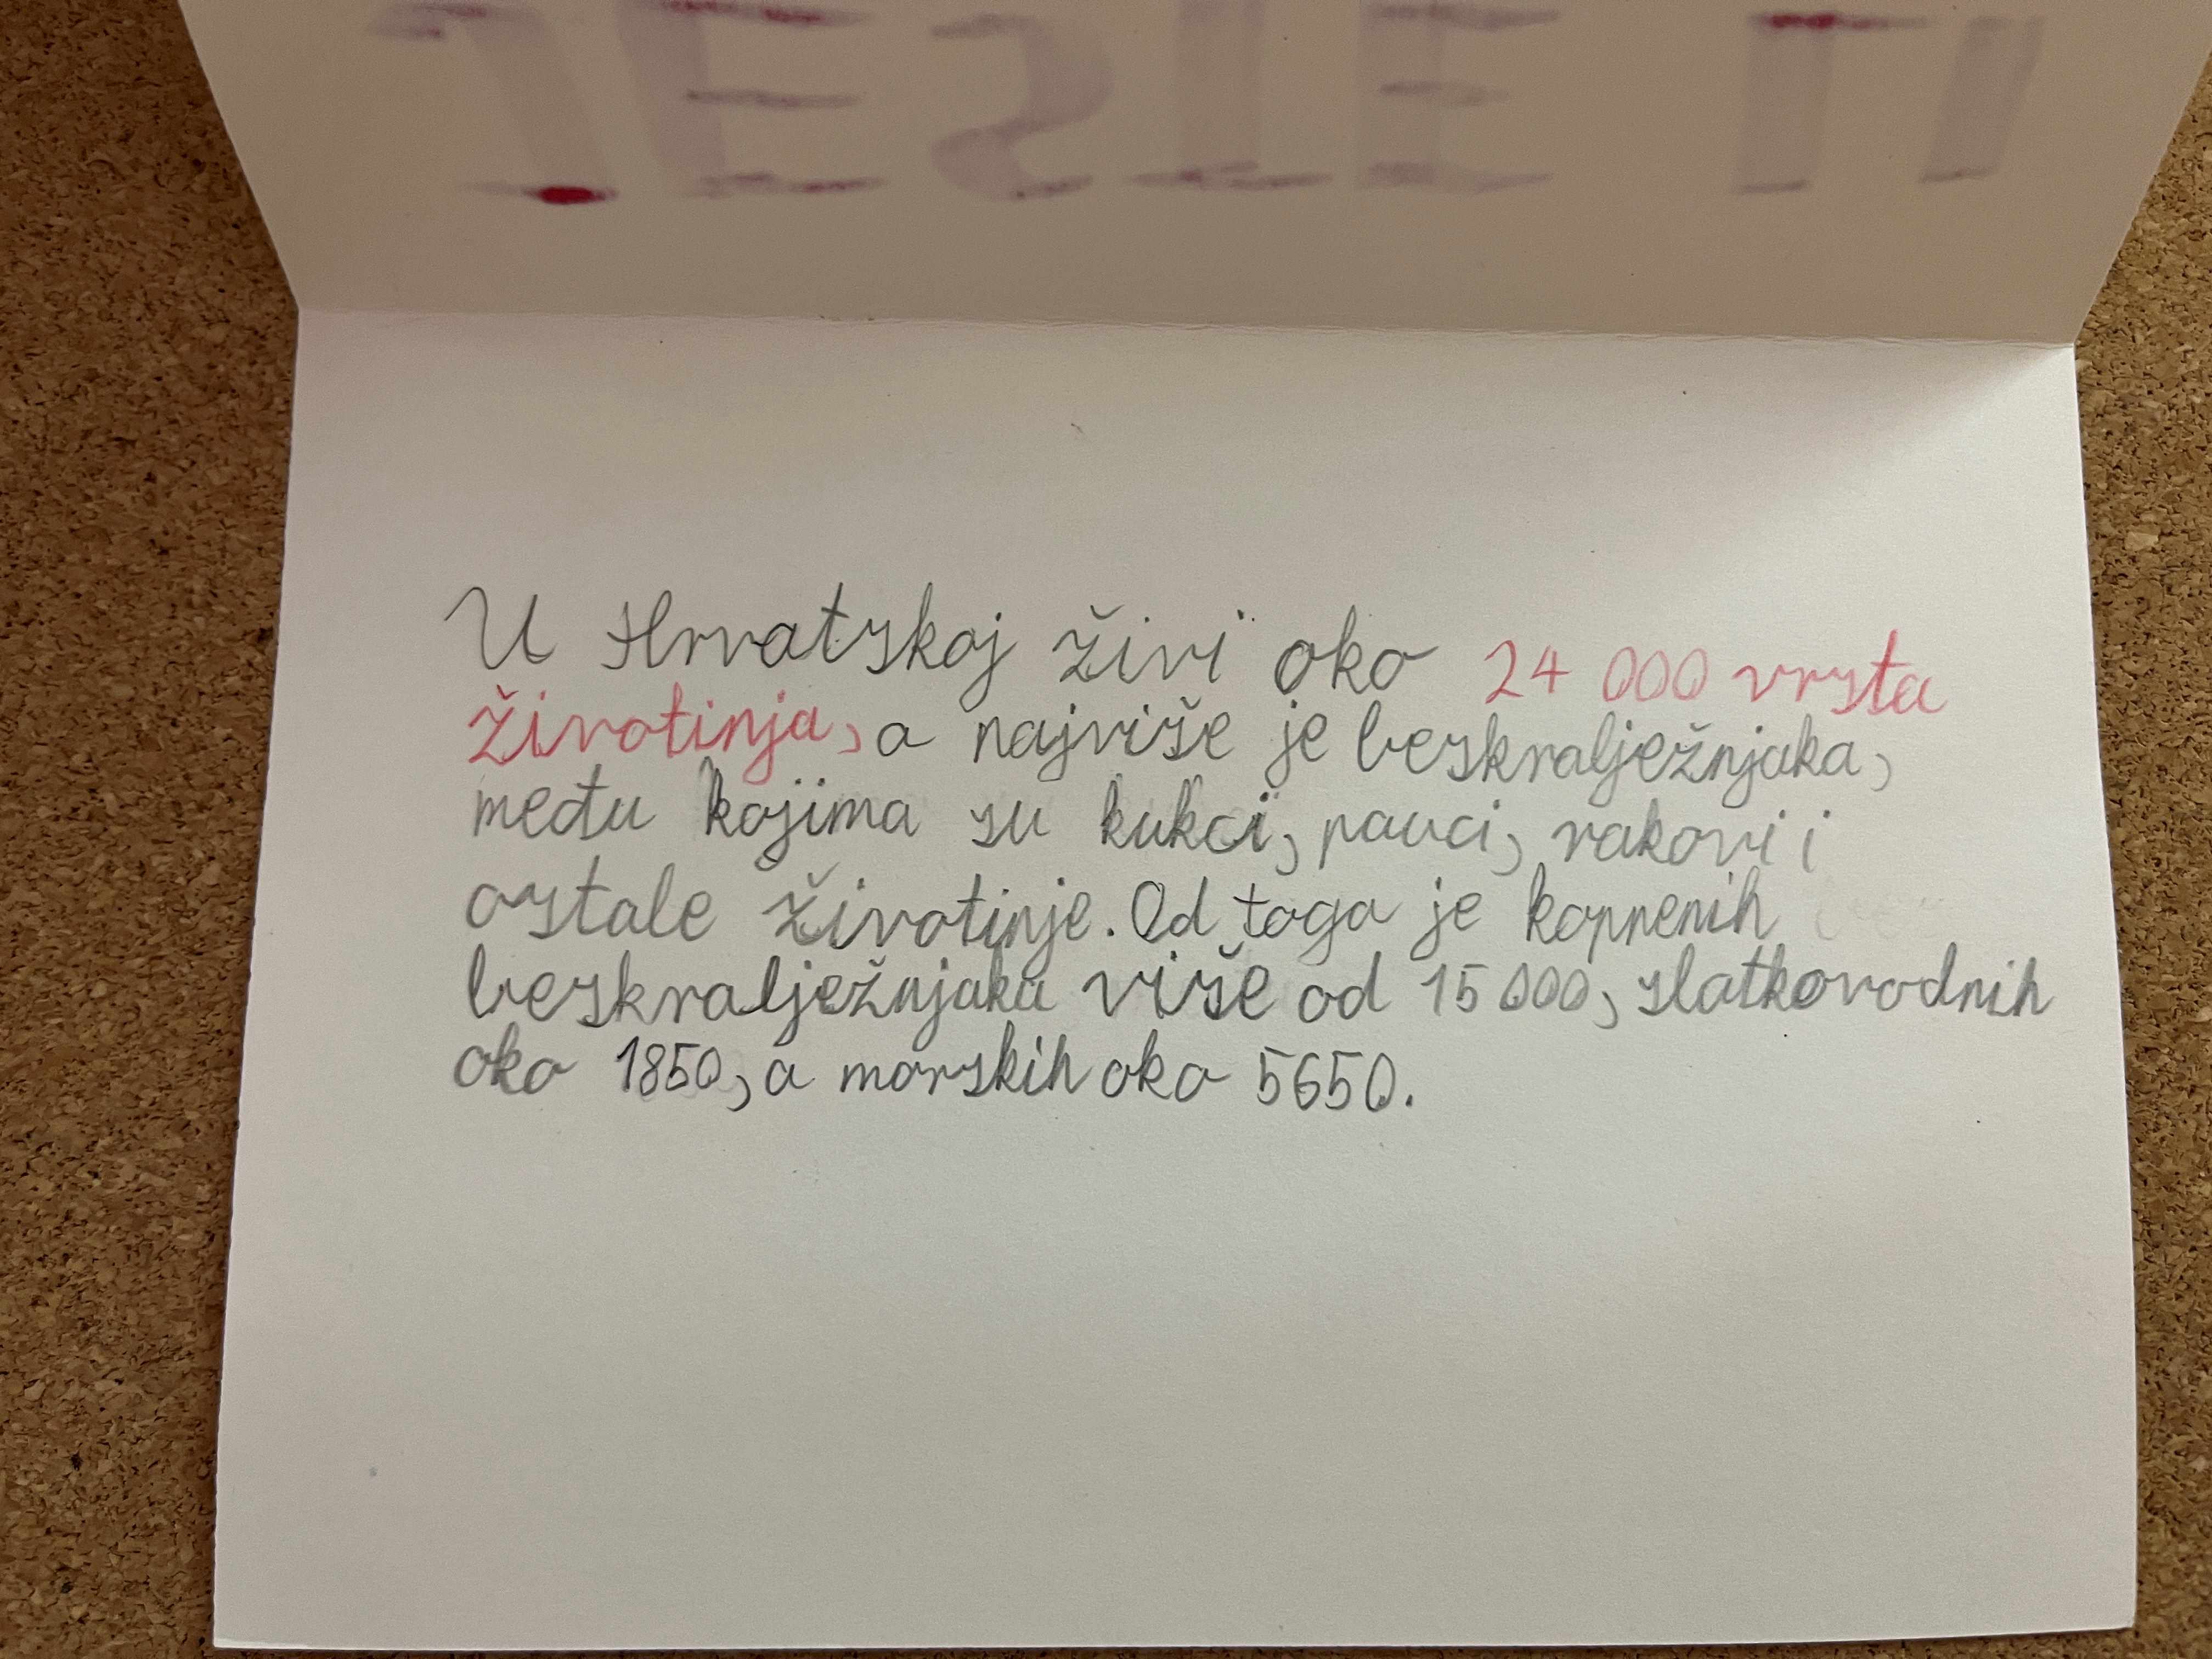 U Hrvatskoj živi oko 24 000 vrsta
životinja, a najviše je beskralježnjaka,
među kojima su kukci, pauci, rakovi i
ostale životinje. Od toga je kopnenih
beskralježnjaka više od 15 000, slatkovodnih
oko 1850, a morskih oko 5650.